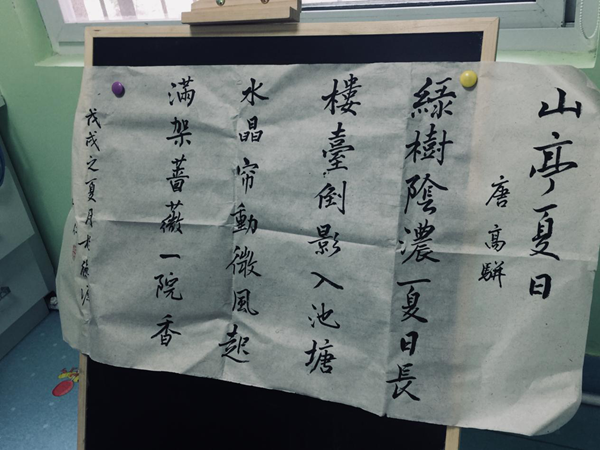 山亭夏日
唐 高駢
綠樹陰濃一夏日長
樓臺倒影入池塘
水晶帘動微風起
滿架薔薇一院香
戊戌之夏月